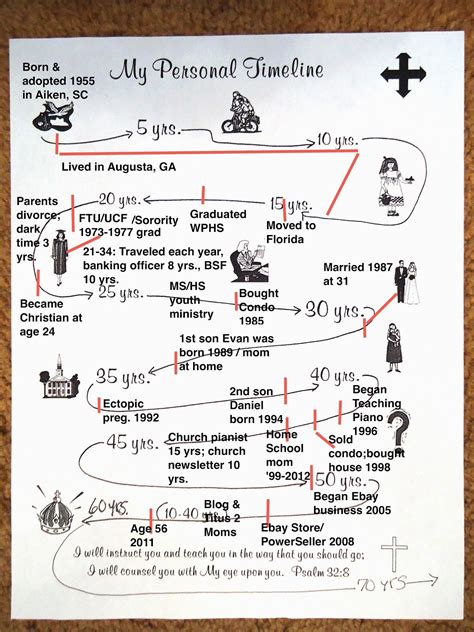 Born &
adopted 1955
in Aiken, SC
My Personal Timeline
5 yrs.
10 yrs.
Lived in Augusta, GA
Parents
divorce;
dark
time 3
yrs.
20 yrs.
15 yrs.
FTU/UCF /Sorority
1973-1977 grad
Graduated
WPHS
Moved to
Florida
21-34: Traveled each year,
banking officer 8 yrs., BSF
10 yrs.
Married 1987
at 31
Became
Christian at
age 24
25 yrs.
MS/HS
youth
ministry
Bought
Condo
1985
30 yrs.
1st son Evan was
born 1989 / mom
at home
35 yrs.
40 yrs.
Ectopic
preg. 1992
2nd son
Daniel
born 1994
Began
Teaching
Piano
1996
45 yrs.
Church pianist
15 yrs; church
newsletter 10
yrs.
Home
School
mom
'99-2012
Sold
condo;bought
house 1998
50 yrs.
Began Ebay
business 2005
60 YRS.
(10-40)
Blog &
Titus 2
Moms
Age 56
2011
Ebay Store/
PowerSeller 2008
I will instruct you and teach you in the way that you should go;
I will counsel you with My eye upon you. Psalm 32:8
70 YRS